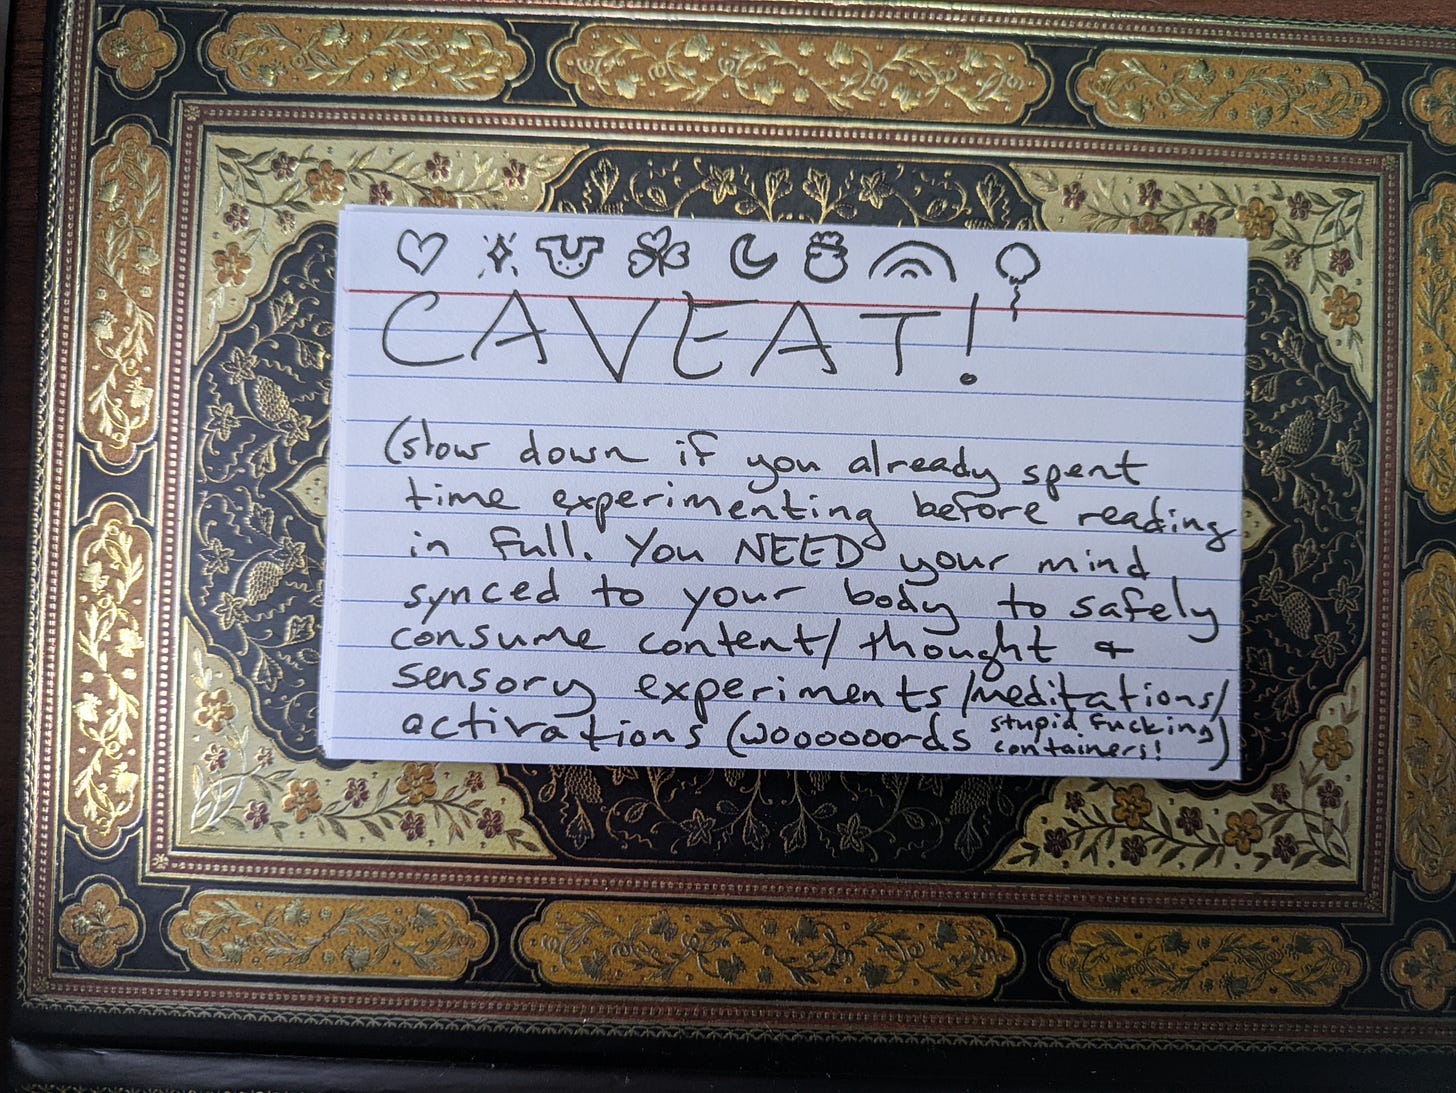 CAVEAT!
(slow down if you already spent
time experimenting before reading
in full. You NEED your mind
synced to your body to safely
consume content/thought &
sensory experiments/meditations/
activations (woooooo-ds stupid fucking
containers!)